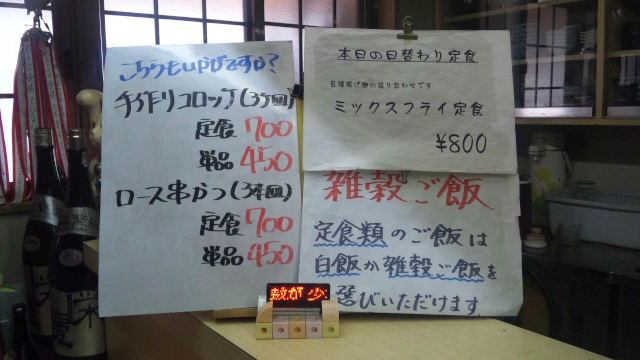 こちらもいかがですか?
手作りコロッケ(3ヶ回)
定食 700
単品 450
ロース串かつ(3本回)
定食 700
単品 450
本日の日替わり定食
各種揚げ物の盛り合わせです
ミックスフライ定食
¥800
雑穀ご飯
定食類のご飯は
白飯か雑穀ご飯を
選びいただけます
数が少